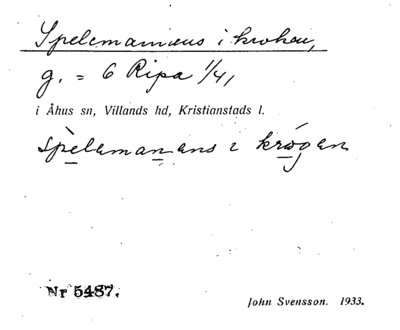 Spelemannens i kroken,
g. = 6 Ripa 1/4,
i Åhus sn, Villands hd, Kristianstads l.
spèlemanens i krógen
Nr 5487.
John Svensson. 1933.